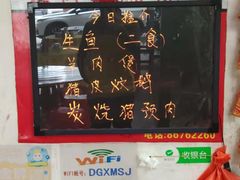 今日推介
生鱼(二食)
羊肉煲
猪皮炆鹅
炭烧猪颈肉
电话:86762260
WiFi
收银台
WIFI账号:DGXMSJ